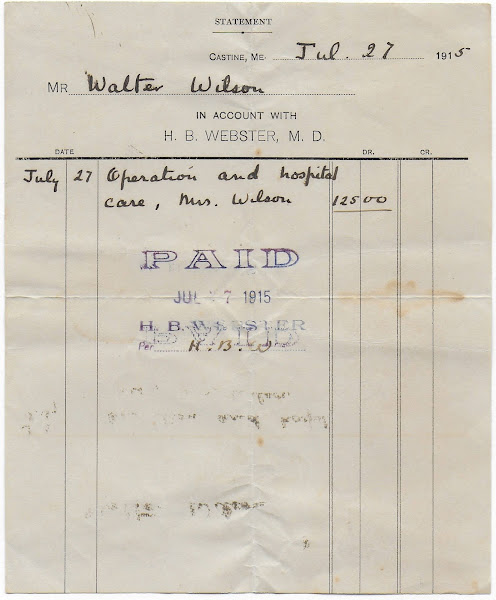 STATEMENT
CASTINE, ME. Jul. 27 1915
MR Walter Wilson
IN ACCOUNT WITH
H. B. WEBSTER, M. D.
DATE DR. CR.
July 27 Operation and hospital
care, Mrs. Wilson 125 00
PAID
JUL 27 1915
H. B. WEBSTER
Per H. B. W